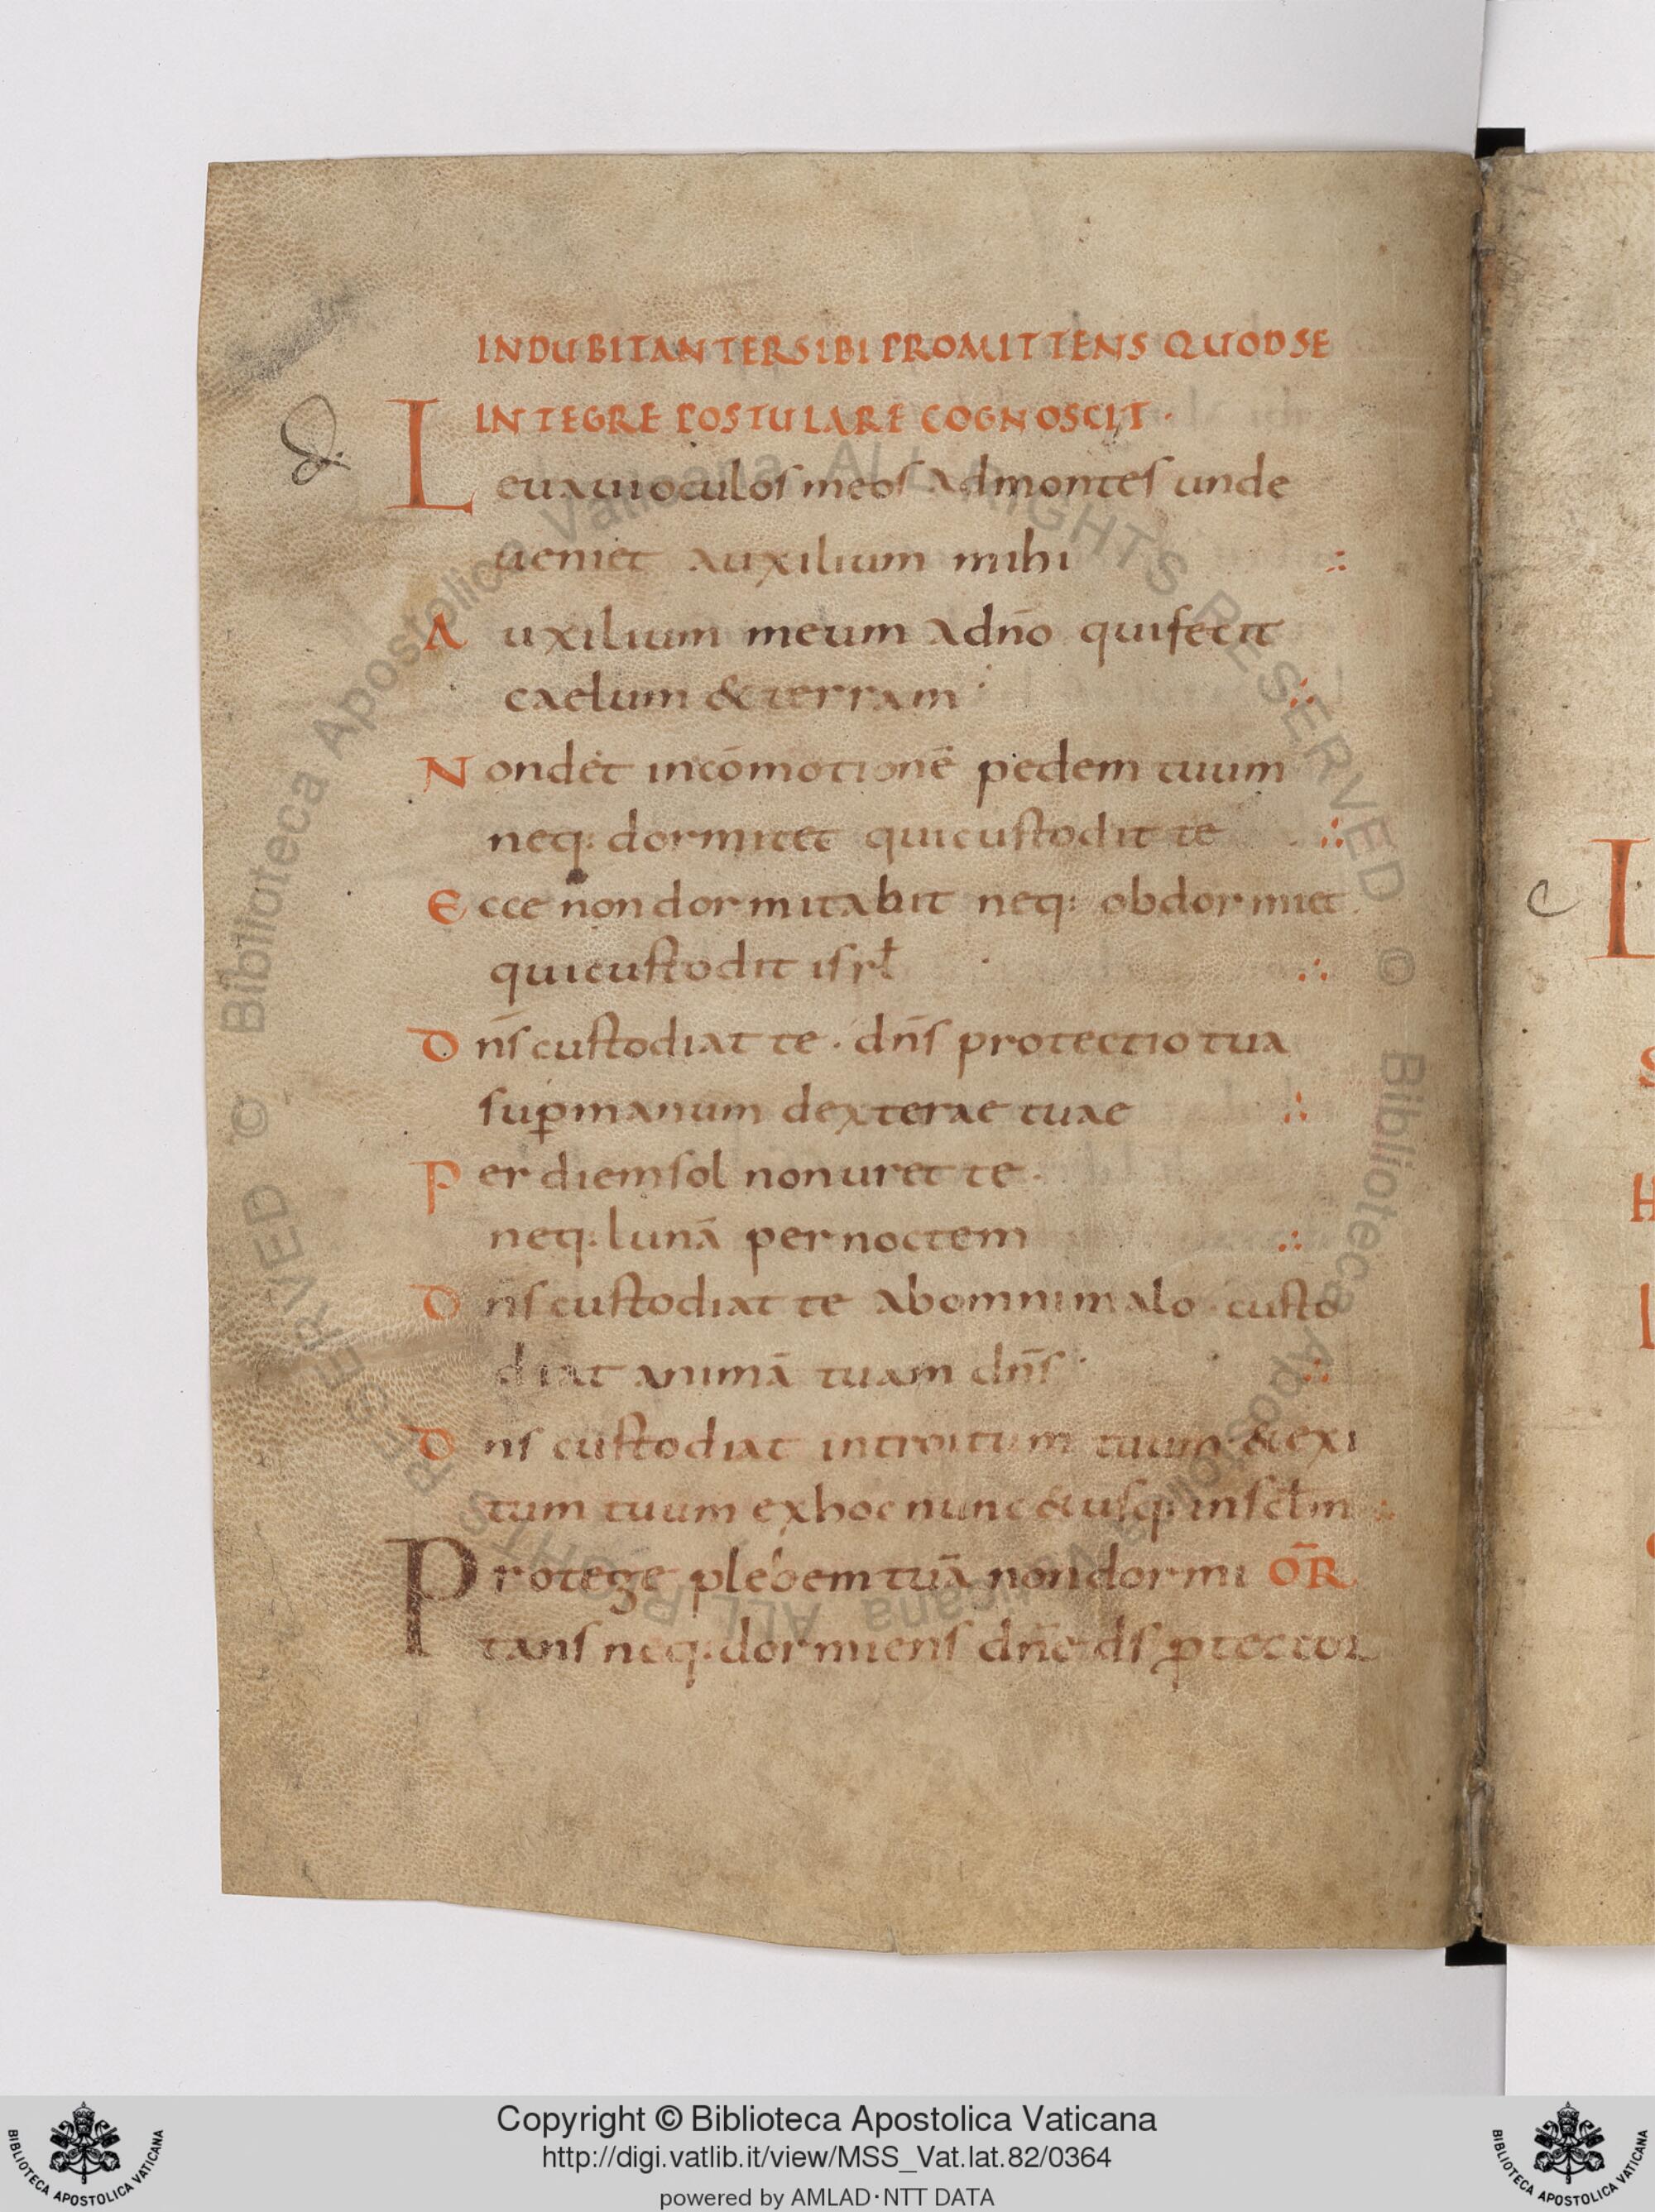 INDUBITANTER SIBI PROMITTENS QUOD SE
INTEGRE POSTULARE COGNOSCIT ·
Leuaui oculos meos ad montes unde
ueniet auxilium mihi ∴
Auxilium meum a dn̄o qui fecit
caelum & terram ∴
Non det in cōmotionē pedem tuum
neq: dormitet qui custodit te ∴
Ecce non dormitabit neq: obdormiet
qui custodit isrł ∴
Dn̄s custodiat te · dn̄s protectio tua
suꝑ manum dexterae tuae ∴
Per diem sol non uret te ·
neq: lunā per noctem ∴
Dn̄s custodiat te ab omni malo · custo
diat animā tuam dn̄s ∴
Dn̄s custodiat introitum tuum & exi
tum tuum ex hoc nunc & usq: in scłm ∴
Protege plebem tuā non dormi OR̄
tans neq: dormiens dn̄e ds ꝓtector
L
Copyright © Biblioteca Apostolica Vaticana
http://digi.vatlib.it/view/MSS_Vat.lat.82/0364
powered by AMLAD·NTT DATA
BIBLIOTECA APOSTOLICA VATICANA
BIBLIOTECA APOSTOLICA VATICANA